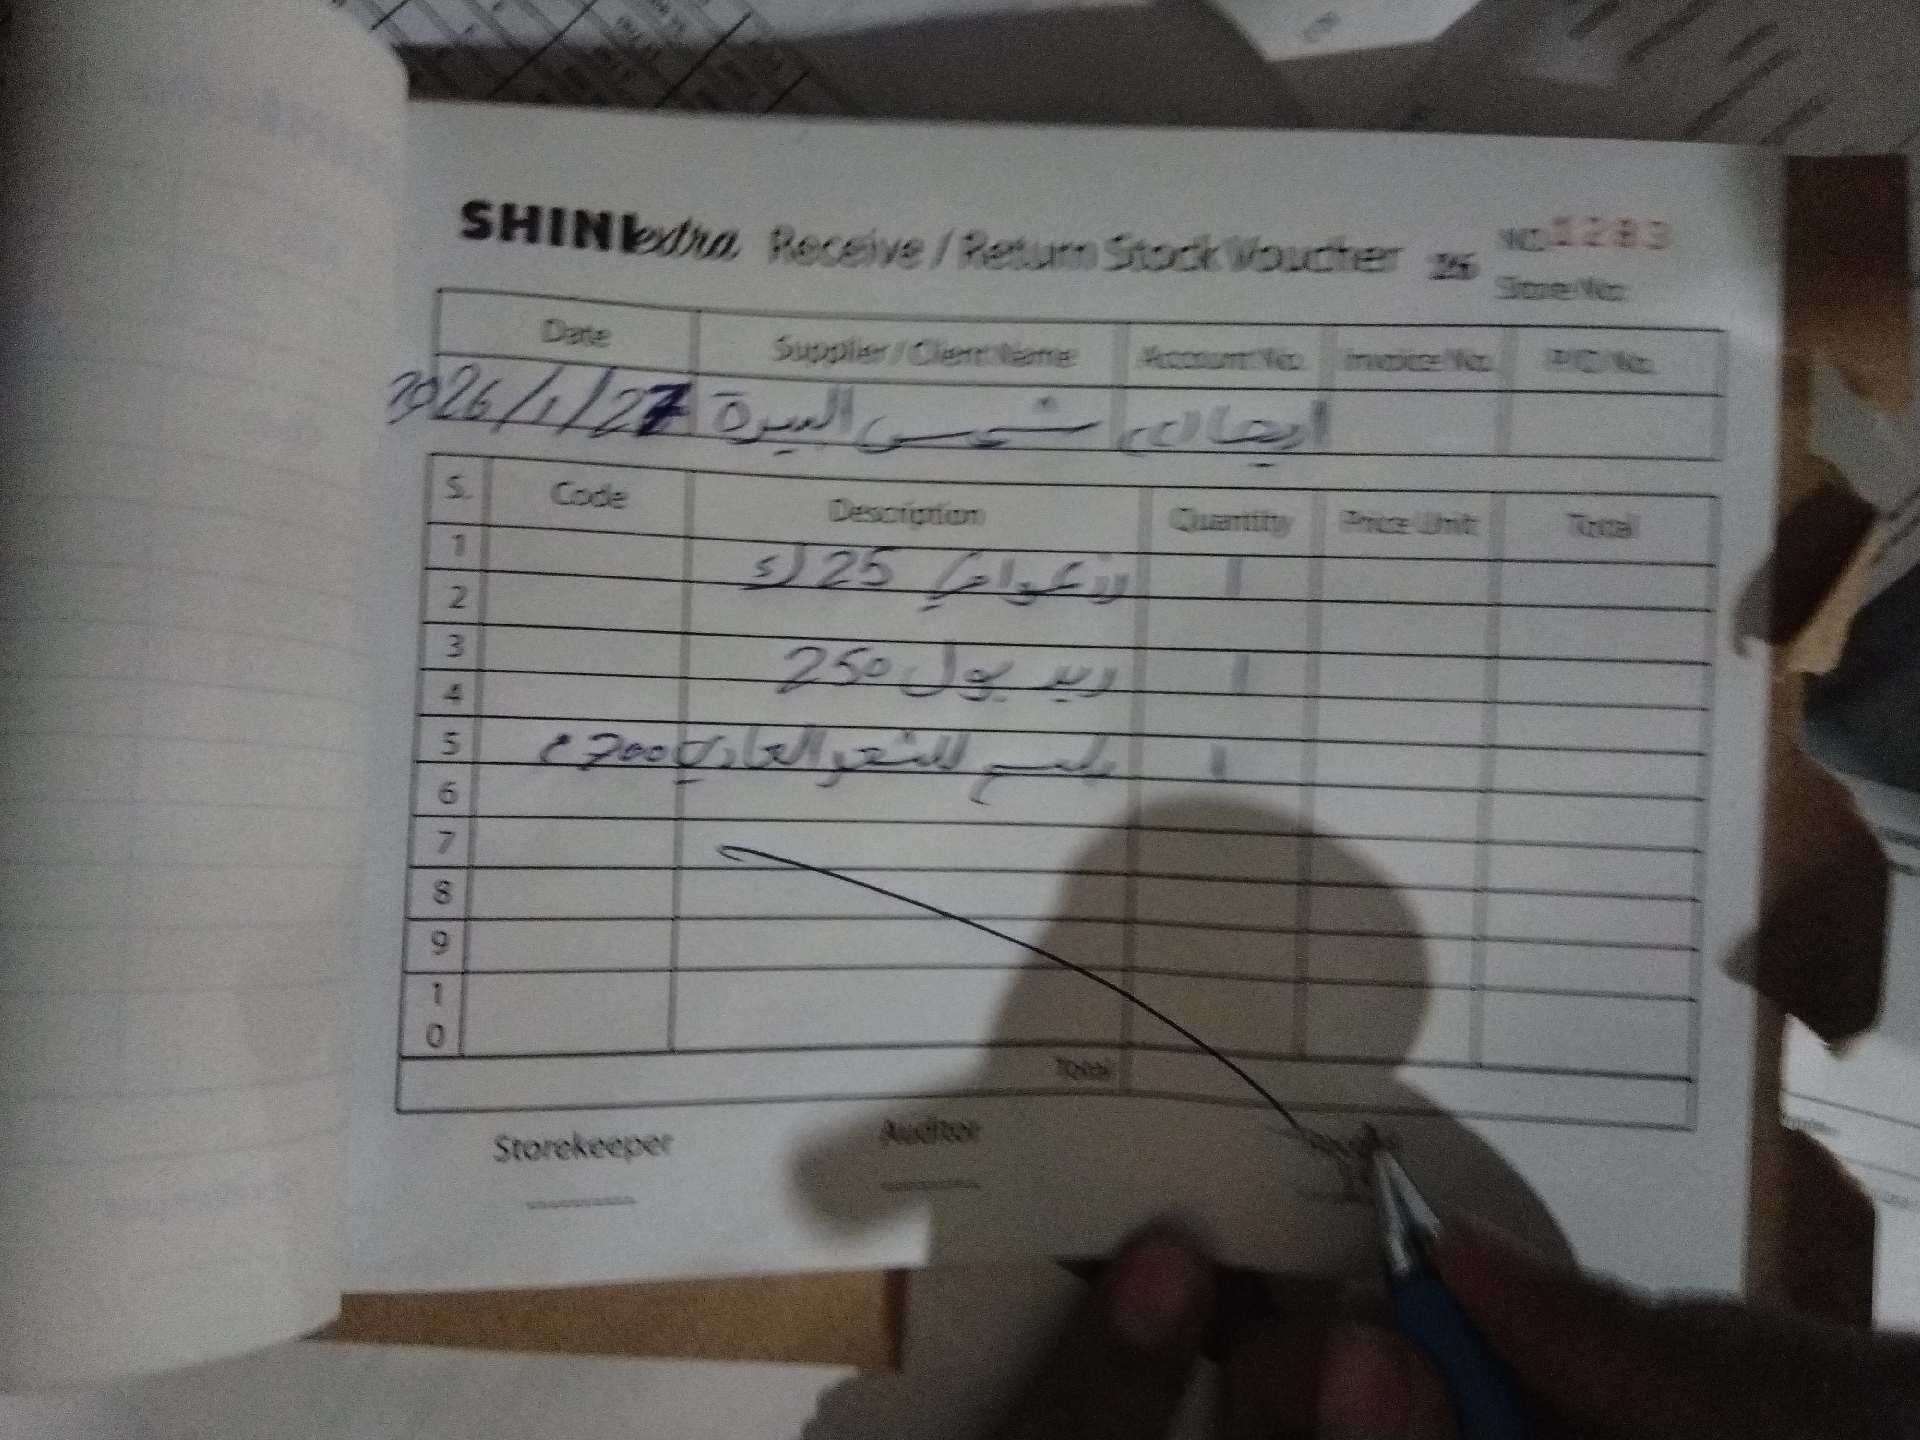 SHINI extra Receive / Return Stock Voucher
NO 1283
Store No:
Date Supplier / Client Name Account No. Invoice No. P/O No.
2026/1/27 شمس السيرة
S. Code Description Quantity Price Unit Total
1 25 ك 1
2
3 ريد بول 250 1
4
5 بلسم للشعر العادي 700 م 1
6
7
8
9
10
Total
Storekeeper Auditor